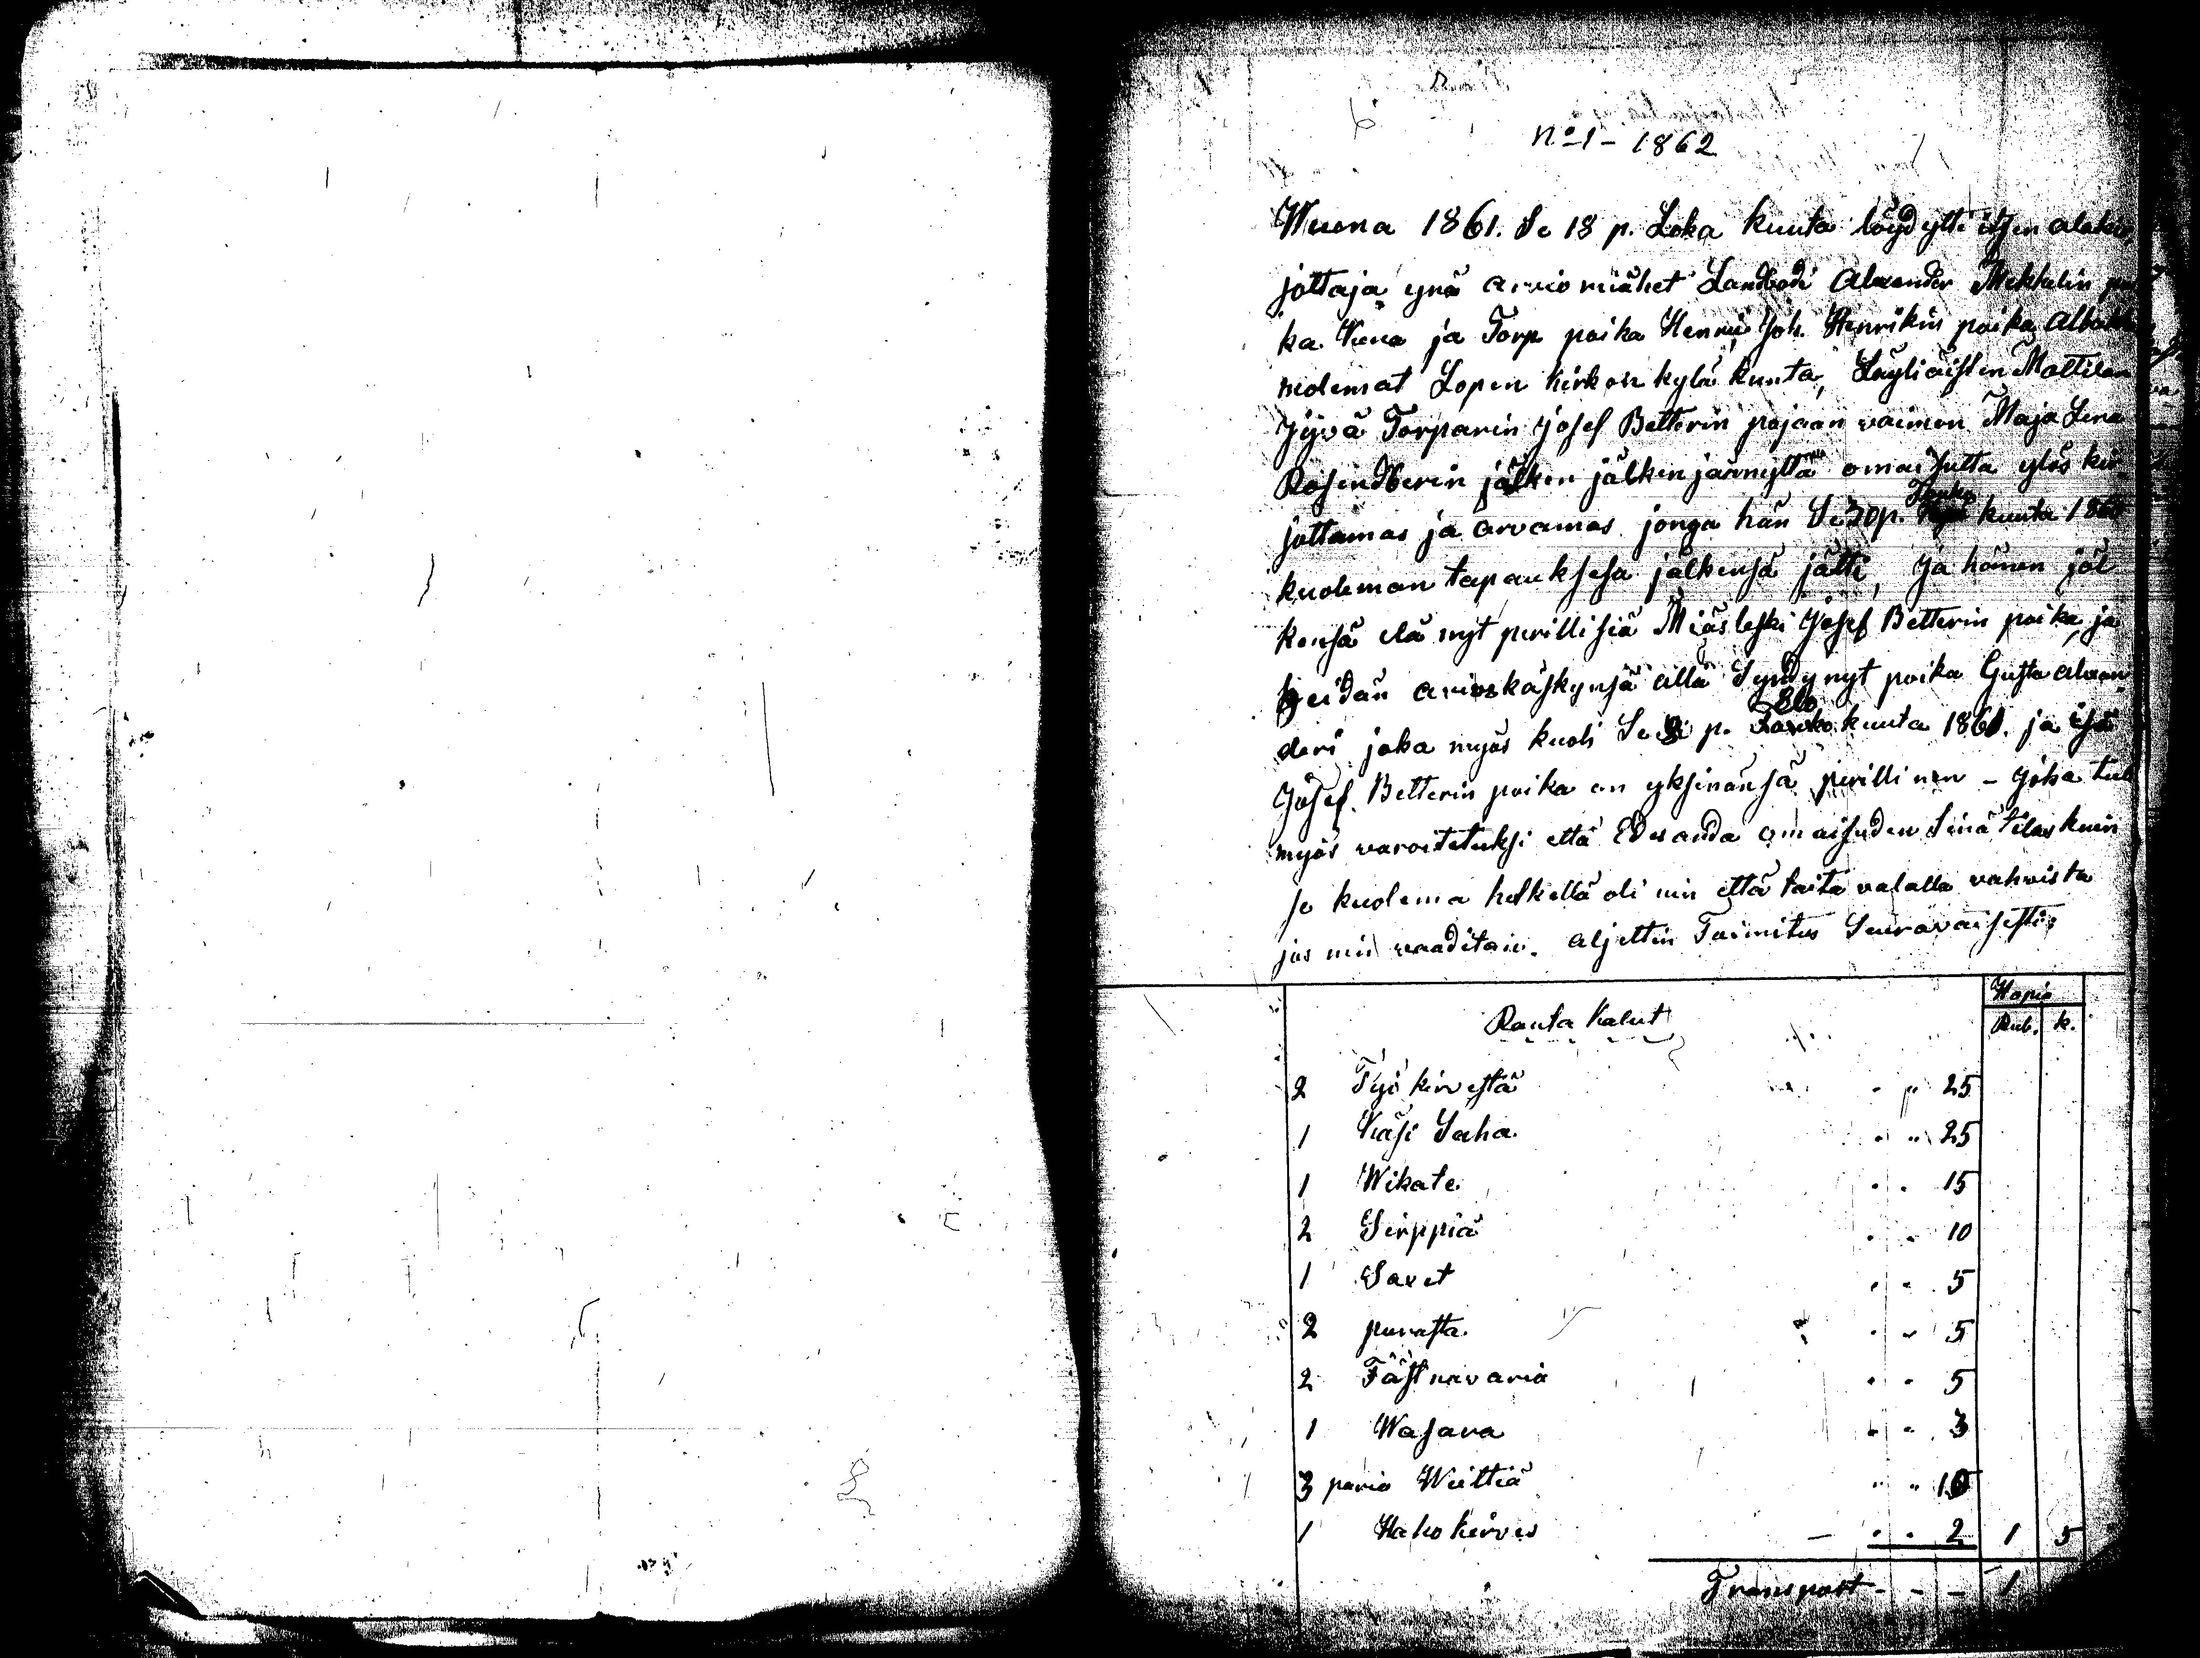 No 1 - 1862
Wuona 1861. Se 18 p. Loka kuuta löydytti itzen alakir,
jottaja ynä arvio miähet Landbodi Alexander Mekkelin poi
ka Kuna ja Torp poika Henrii Joh. Henrikin poika
molemat Lopen kirkon kylä kunta, Läyliäisten Mattilan
Jyvä Torparin Josef Betterin pojaan vaimon Maja Lena
Rosendberin jälken jälkenjäännyttä omaisutta ylös kir
jottamas ja arvamas jonga hän Se 30 p. Touko kuuta 1860
kuoleman tapauksesa jälkensä jätti, Ja hänen jäl
kensä elä nyt perillisiä Miäs leski Josef Betterin poika, ja
heidän avioskäskynsä alla Syndynyt poika Gusta Alexan
deri joka myös kuoli Se p. Elo kuuta 1861. ja isä
Josef Betterin poika on yksinänsä perillinen - Joka tuli
myös varoitetuksi että Edesanda omaisuden Sinä tilas kuin
se kuolema hetkellä oli nin että taitä valalla vahvista
jos nin vaaditaan. aljettin Toimitus Seuravaisesti;
Hopia
Rauta Kalut Rub. k.
2 Työ kirvestä . " 25
1 Käsi Saha . " 25
1 Wikate . . 15
2 Sirppiä . . 10
1 Saxet . . 5
2 purasta . . 5
2 Fästnavaria . . 5
1 Wasara . . 3
3 paria Wiittiä " " 10
1 Hako kirves - . . 2 1 5
Transport - - - 1